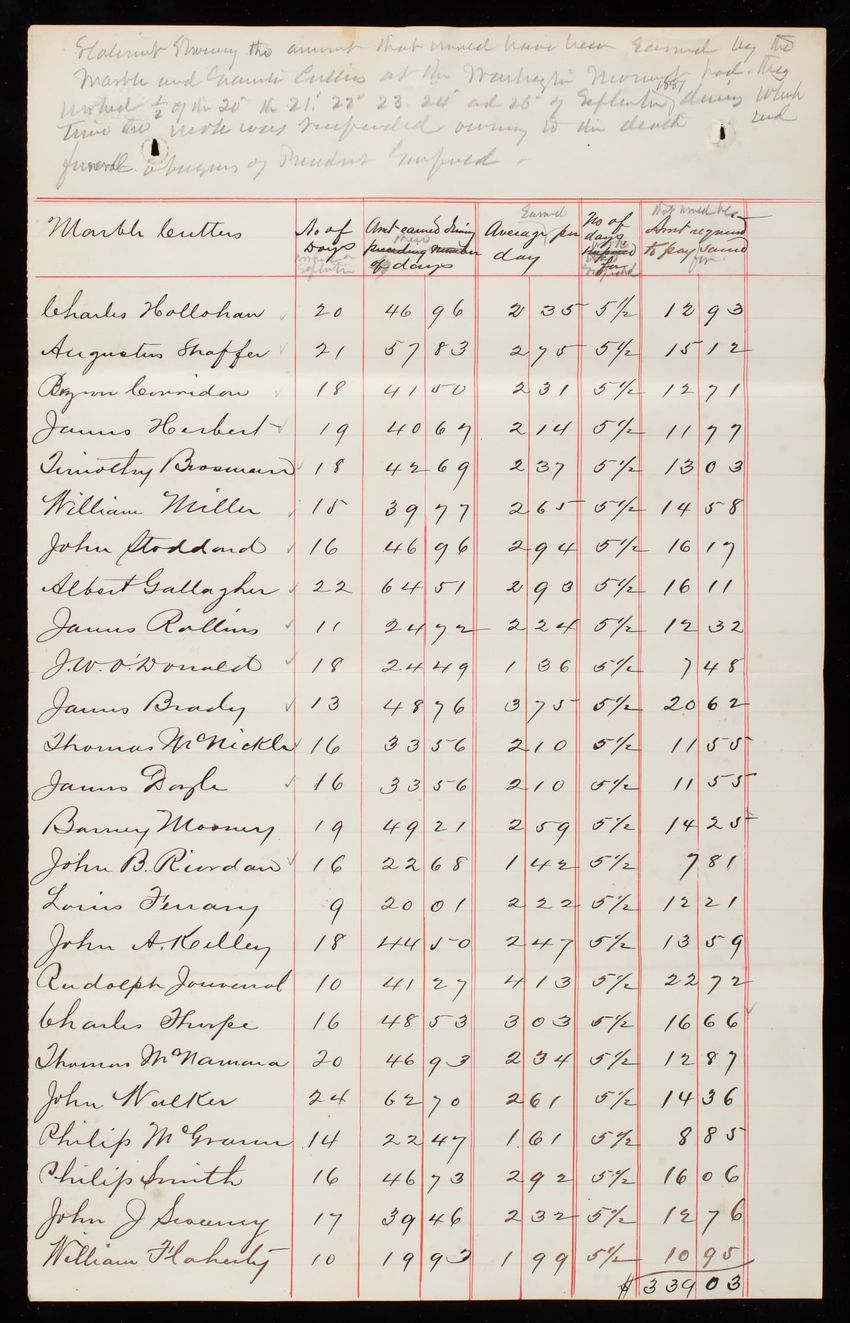 Statement Showing the amount that would have been Earned by the
Marble and Granite Cutters at the Washington Monument had they
worked ½ of the 20" the 21" 22" 23. 24" and 26" of September 1881 during which
time the work was suspended owing to the death and
funeral obsequies of President Garfield -
Marble Cutters No of Days Amt earned during preceding number of days Average Earned per day No of days for Amt required to pay same
Charles Hollohan 20 46 96 2 35 5½ 12 93
Augustus Shaffer 21 57 83 2 75 5½ 15 12
Byron Corridon 18 41 50 2 31 5½ 12 71
James Herbert 19 40 67 2 14 5½ 11 77
Timothy Brosman 18 42 69 2 37 5½ 13 03
William Miller 15 39 77 2 65 5½ 14 58
John Stoddard 16 46 96 2 94 5½ 16 17
Albert Gallagher 22 64 51 2 93 5½ 16 11
James Rollins 11 24 72 2 24 5½ 12 32
J. W. O'Donald 18 24 49 1 36 5½ 7 48
James Brady 13 48 76 3 75 5½ 20 62
Thomas McNickle 16 33 56 2 10 5½ 11 55
James Doyle 16 33 56 2 10 5½ 11 55
Barney Mooney 19 49 21 2 59 5½ 14 25
John B. Riordan 16 22 68 1 42 5½ 7 81
Louis Ferrary 9 20 01 2 22 5½ 12 21
John A. Kelley 18 44 50 2 47 5½ 13 59
Rudolph Jouvenal 10 41 27 4 13 5½ 22 72
Charles Thorpe 16 48 53 3 03 5½ 16 66
Thomas McNamara 20 46 93 2 34 5½ 12 87
John Walker 24 62 70 2 61 5½ 14 36
Philip McGrann 14 22 47 1 61 5½ 8 85
Philip Smith 16 46 73 2 92 5½ 16 06
John J Sweeny 17 39 46 2 32 5½ 12 76
William Flaherty 10 19 93 1 99 5½ 10 95
$ 339 03